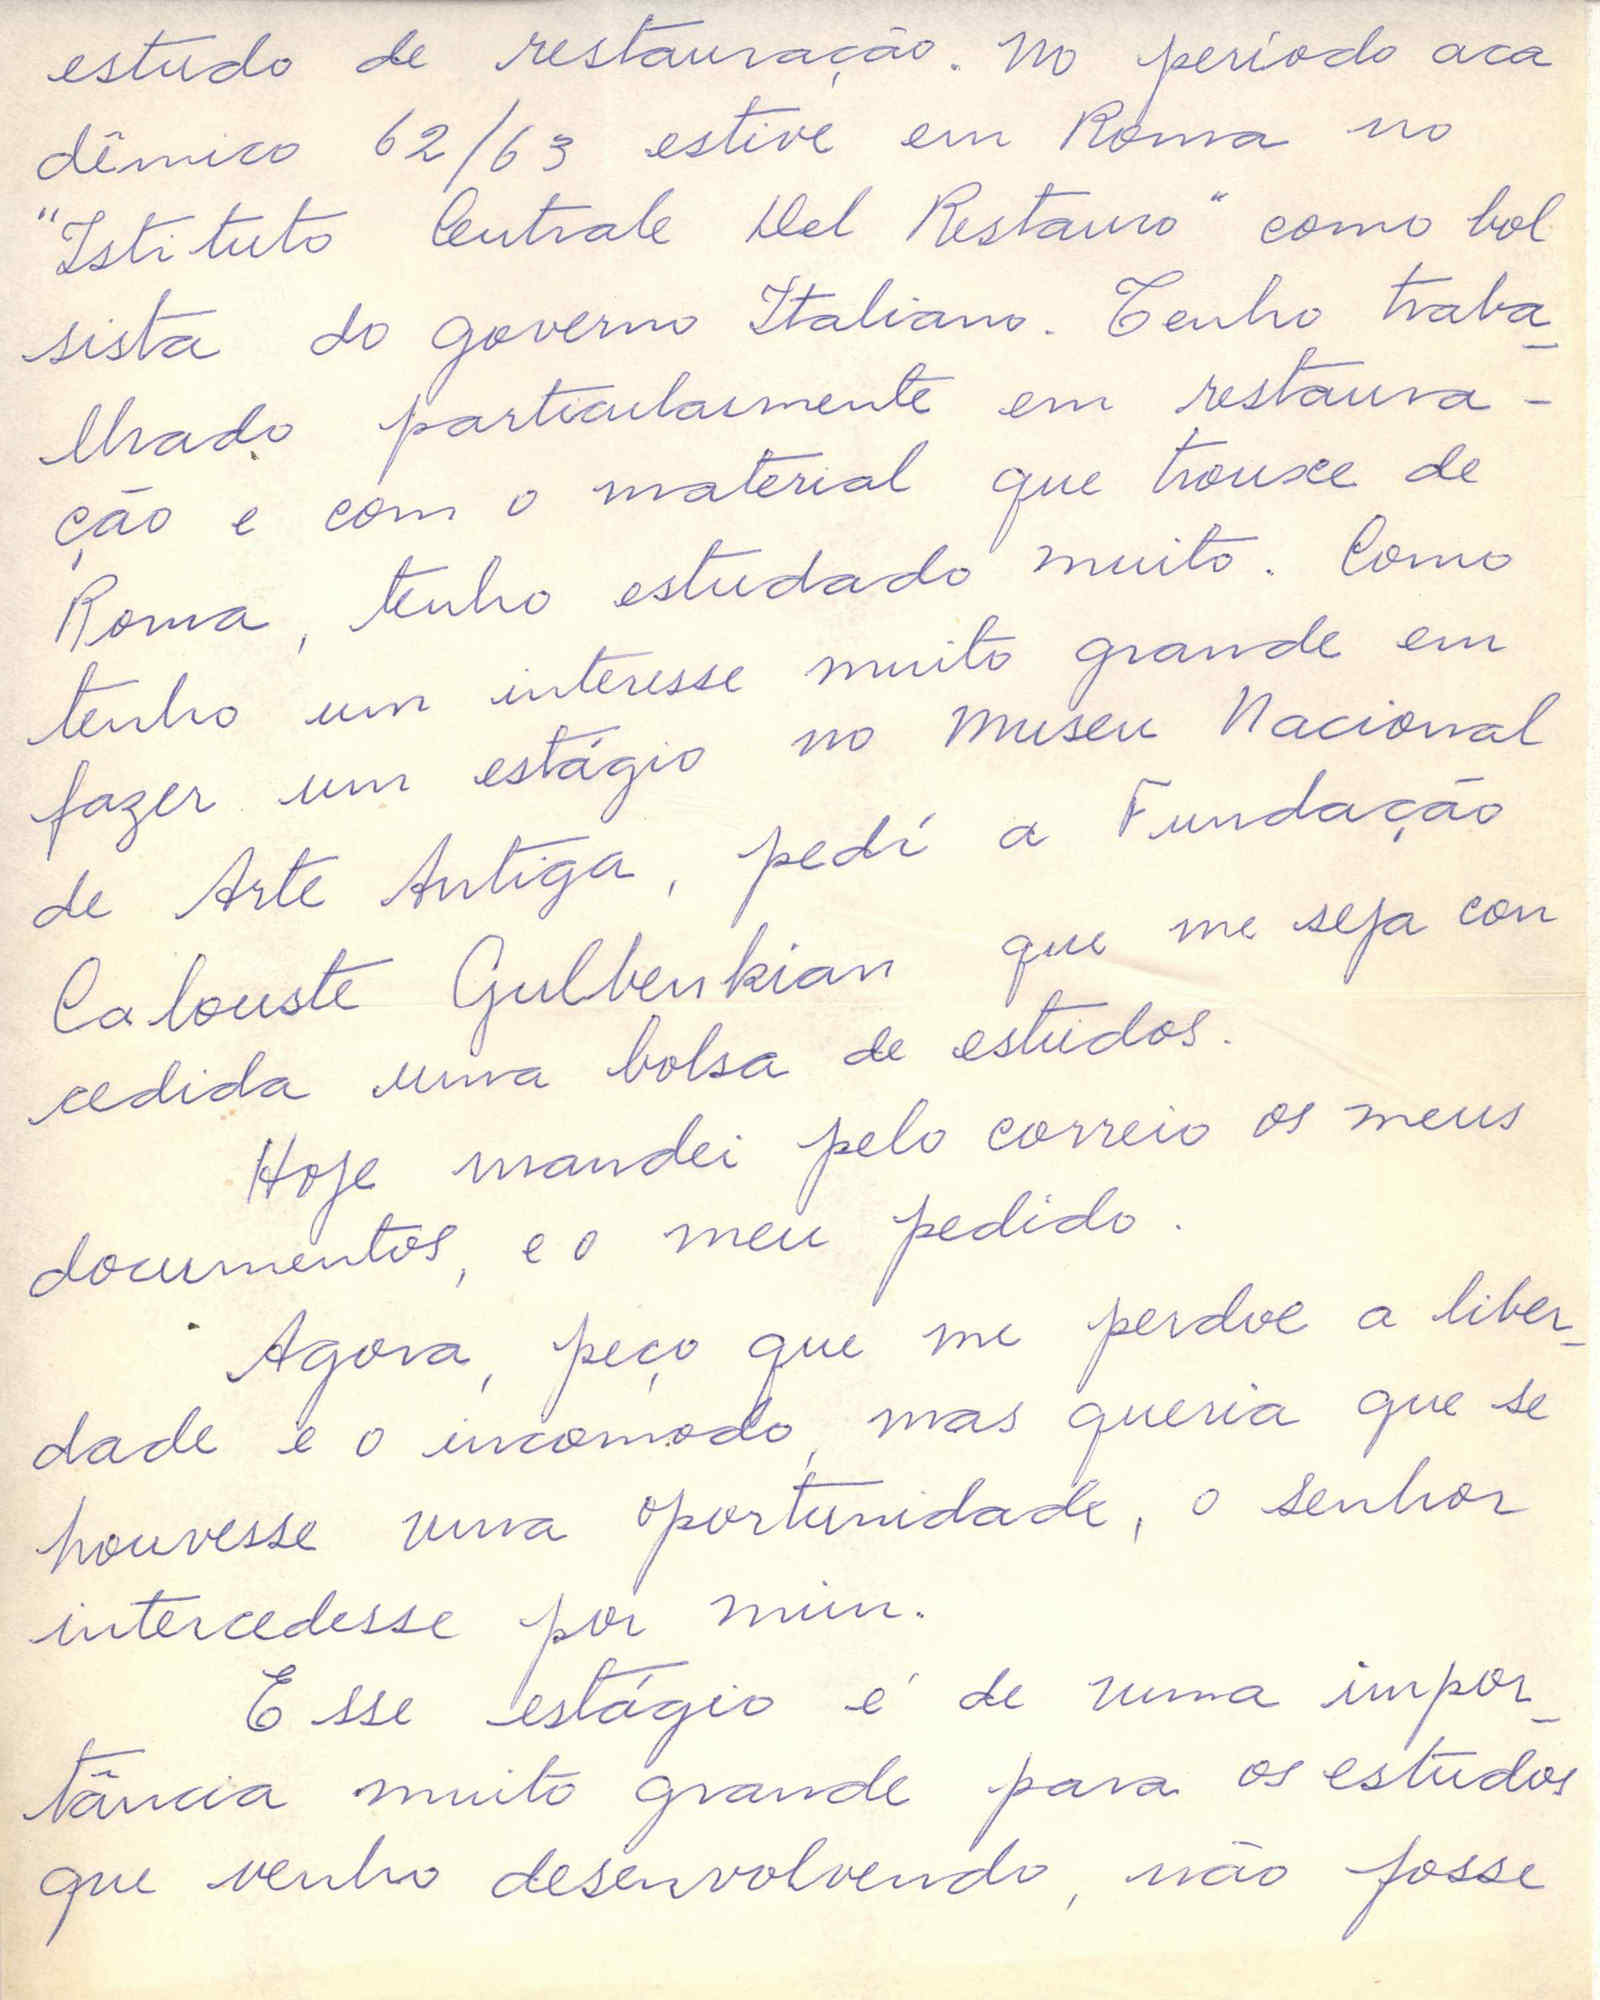 estudo de restauração. No período aca
dêmico 62/63 estive em Roma no
"Istituto Centrale Del Restauro" como bol
sista do governo Italiano. Tenho traba_
lhado particularmente em restaura -
ção e com o material que trouxe de
Roma, tenho estudado muito. Como
tenho um interesse muito grande em
fazer um estágio no Museu Nacional
de Arte Antiga, pedí a Fundação
Calouste Gulbenkian que me seja con
cedida uma bolsa de estudos.
Hoje mandei pelo correio os meus
documentos, e o meu pedido.
Agora, peço que me perdoe a liber_
dade e o incomodo, mas queria que se
houvesse uma oportunidade, o senhor
intercedesse por mim.
Esse estágio é de uma impor_
tância muito grande para os estudos
que venho desenvolvendo, não fosse